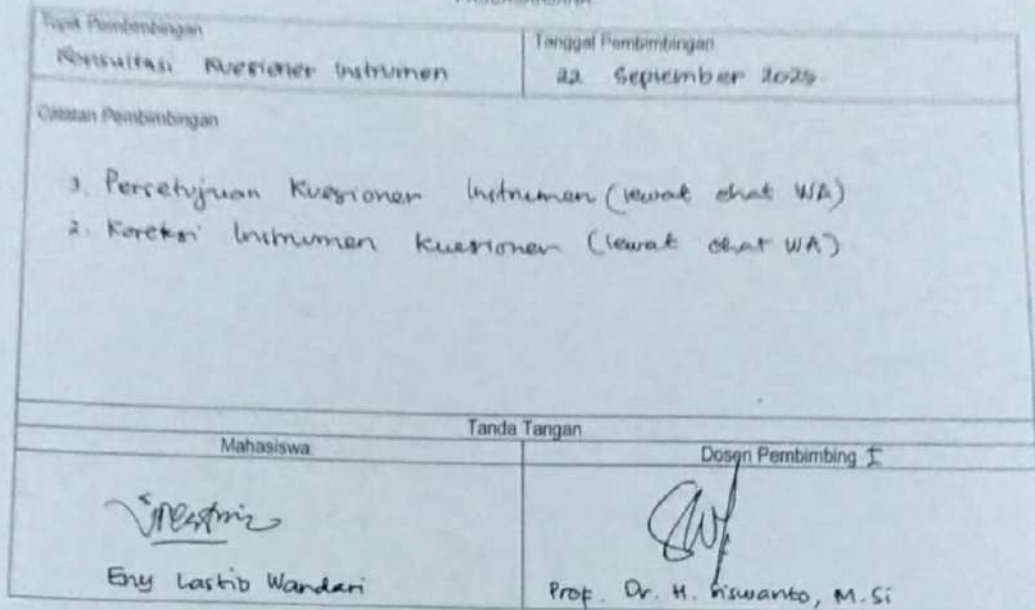 Topik Pembimbingan
Konsultasi Kuesioner Instrumen
Tanggal Pembimbingan
22 September 2025
Catatan Pembimbingan
1. Persetujuan Kuesioner Instrumen (lewat chat WA)
2. Koreksi Instrumen Kuesioner (lewat chat WA)
Tanda Tangan
Mahasiswa
Dosen Pembimbing I
Eny Lastio Wandari
Prof. Dr. H. Siswanto, M.Si